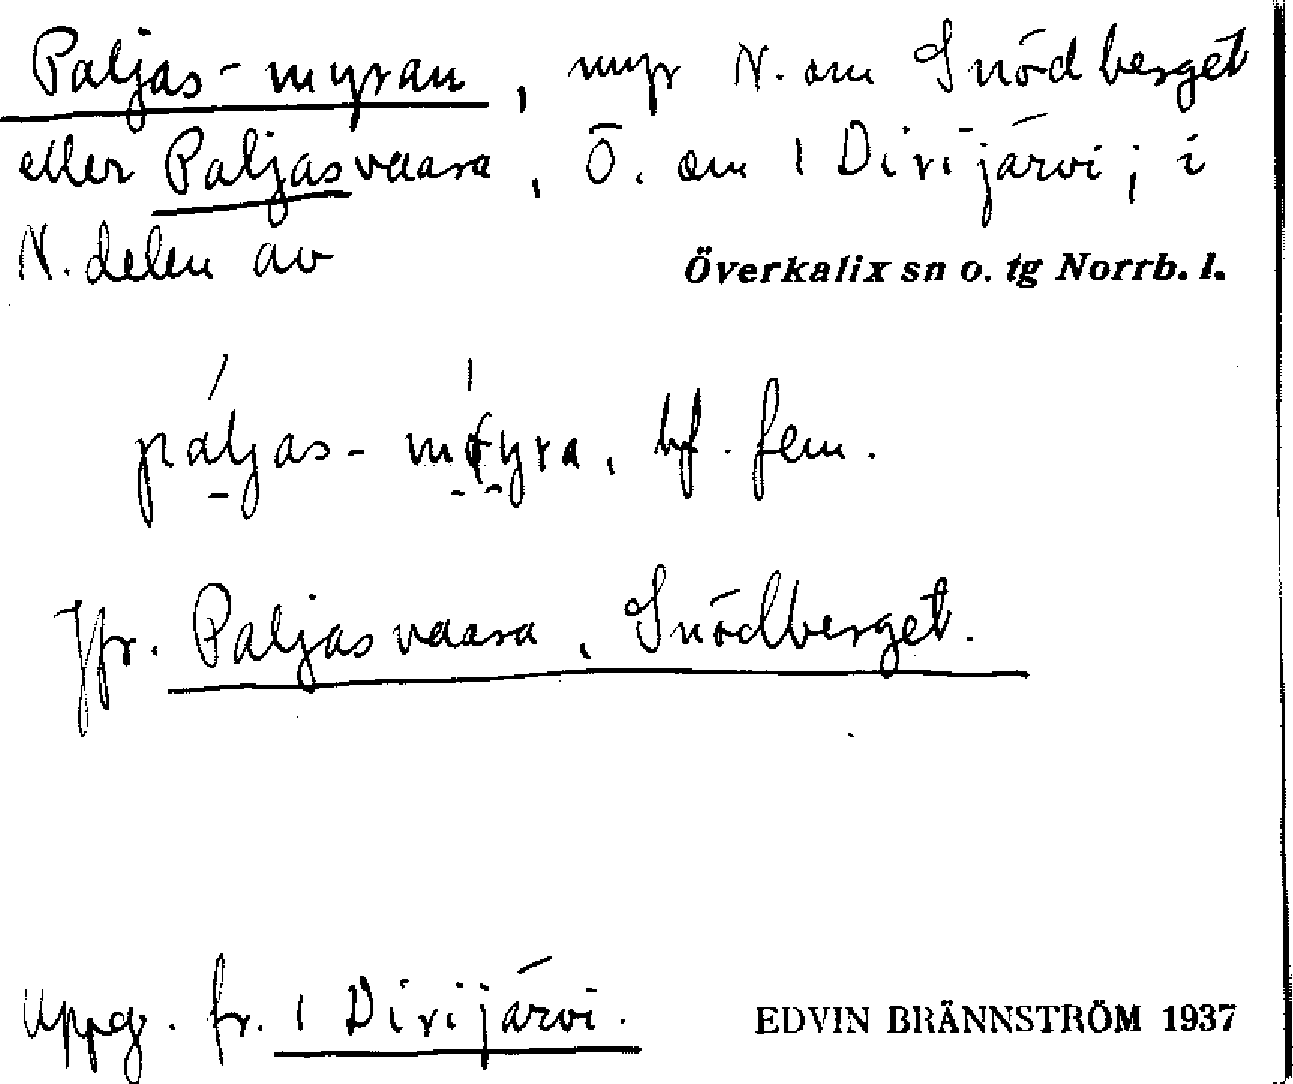 Paljas-myran, myr N. om Snödberget
eller Paljasvaara, Ö. om 1 Dirijärvi; i
N. delen av
Överkalix sn o. tg Norrb. l.
páljas- myra, bf. fem.
Jfr. Paljasvaara, Snödberget.
Uppg. fr. 1 Dirijärvi.
EDVIN BRÄNNSTRÖM 1937